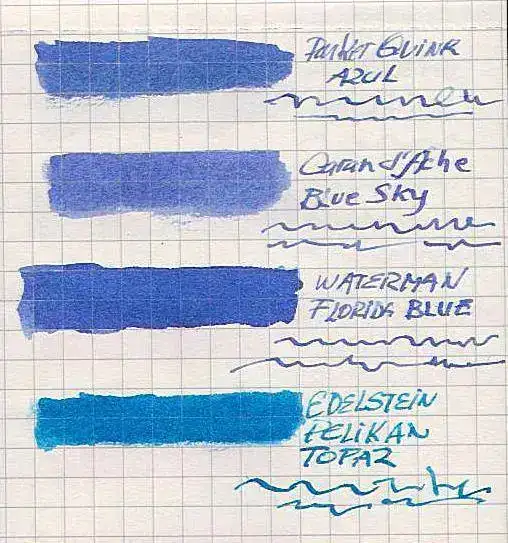 Parker Quink
AZUL
Caran d'Ache
Blue Sky
WATERMAN
FLORIDA BLUE
EDELSTEIN
PELIKAN
TOPAZ